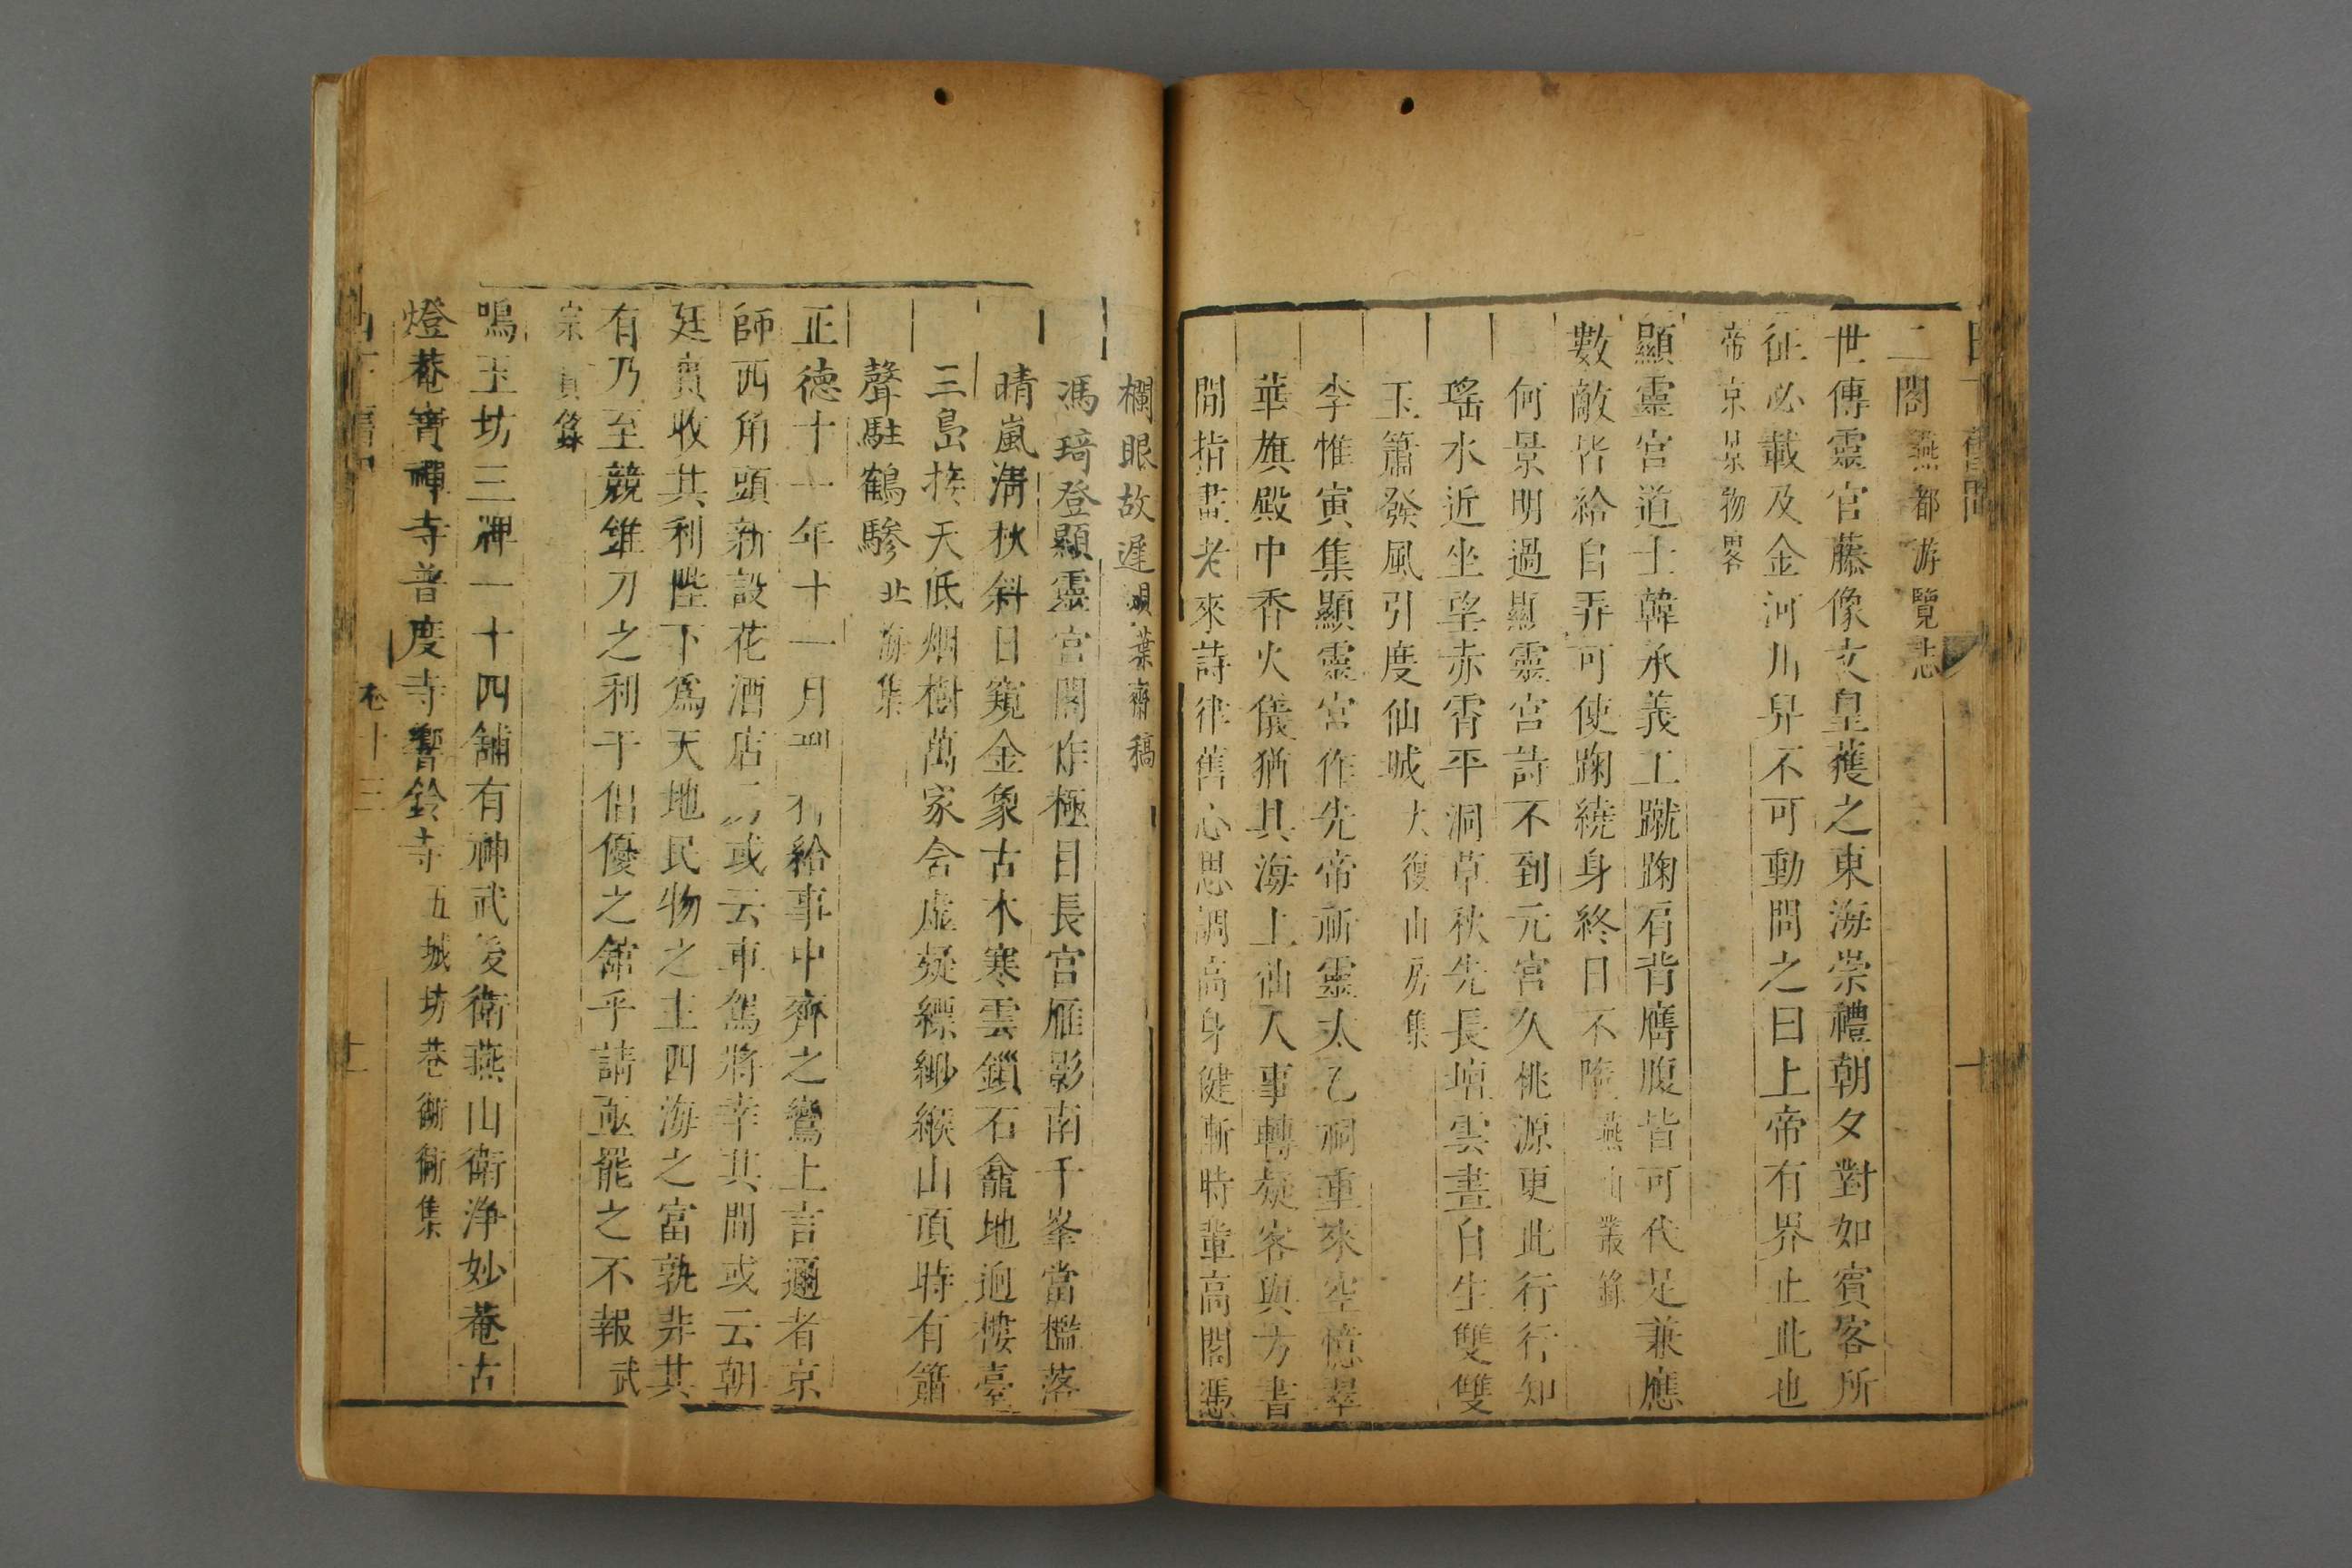 二閣燕都游覽志
世傳靈官藤像文皇獲之東海崇禮朝夕對如賓客所
征必載及金河川舁不可動問之曰上帝有界止此也
帝京景物畧
顯靈宮道士韓承義工蹴踘肩背膺腹皆可代足兼應
數敵皆給自弄可使踘繞身終日不墮燕山叢錄
何景明過顯靈宮詩不到元宮久桃源更此行行知
瑤水近坐望赤霄平洞草秋先長壇雲晝自生雙雙
玉簫發風引度仙城大復山房集
李惟寅集顯靈宮作先帝祈靈太乙祠重來空憶翠
華旗殿中香火儀猶具海上仙人事轉疑客與方書
閒指畫老來詩律舊心思調高身健漸時輩高閣憑
欄眼故遲貝葉齋稿
馮琦登顯靈宮閣作極目長宮雁影南千峯當檻落
晴嵐淸秋斜日窺金象古木寒雲鎻石龕地迥樓臺
三島接天低烟樹萬家含虛疑縹緲緱山頂時有簫
聲駐鶴驂北海集
正德十一年十一月 給事中齊之鸞上言邇者京
師西角頭新設花酒店 或云車駕將幸其間或云朝
廷實收其利陛下爲天地民物之主四海之富孰非其
有乃至競錐刀之利干倡優之舘乎請亟罷之不報武
宗實錄
鳴玉坊三牌一十四舖有神武後衛燕山衛淨妙菴古
燈菴寶禪寺普度寺響鈴寺五城坊巷衚衕集
卷十三